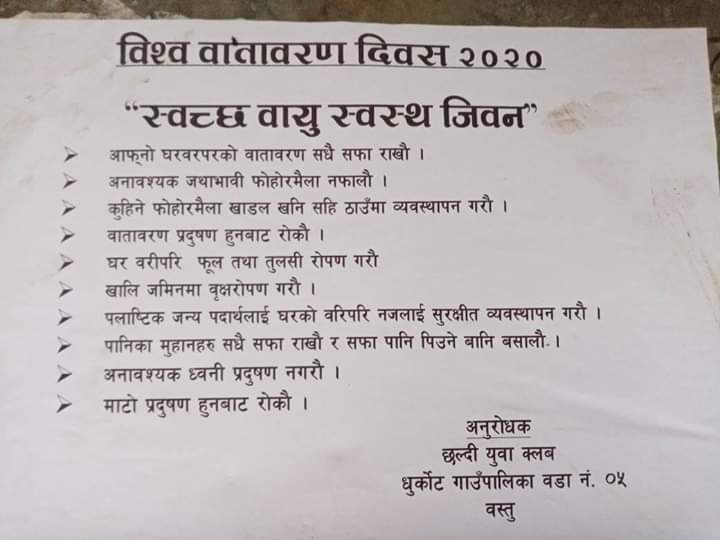 विश्व वातावरण दिवस २०२०
“स्वच्छ वायु स्वस्थ जिवन”
➢ आफ्नो घरवरपरको वातावरण सधै सफा राखौ ।
➢ अनावश्यक जथाभावी फोहोरमैला नफालौ ।
➢ कुहिने फोहोरमैला खाडल खनि सहि ठाउँमा व्यवस्थापन गरौ ।
➢ वातावरण प्रदुषण हुनबाट रोकौ ।
➢ घर वरीपरि फूल तथा तुलसी रोपण गरौ
➢ खालि जमिनमा वृक्षरोपण गरौ ।
➢ पलाष्टिक जन्य पदार्थलाई घरको वरिपरि नजलाई सुरक्षीत व्यवस्थापन गरौ ।
➢ पानिका मुहानहरु सधै सफा राखौ र सफा पानि पिउने बानि बसालौ ।
➢ अनावश्यक ध्वनी प्रदुषण नगरौ ।
➢ माटो प्रदुषण हुनबाट रोकौ ।
अनुरोधक
छल्दी युवा क्लब
धुर्कोट गाउँपालिका वडा नं. ०५
वस्तु